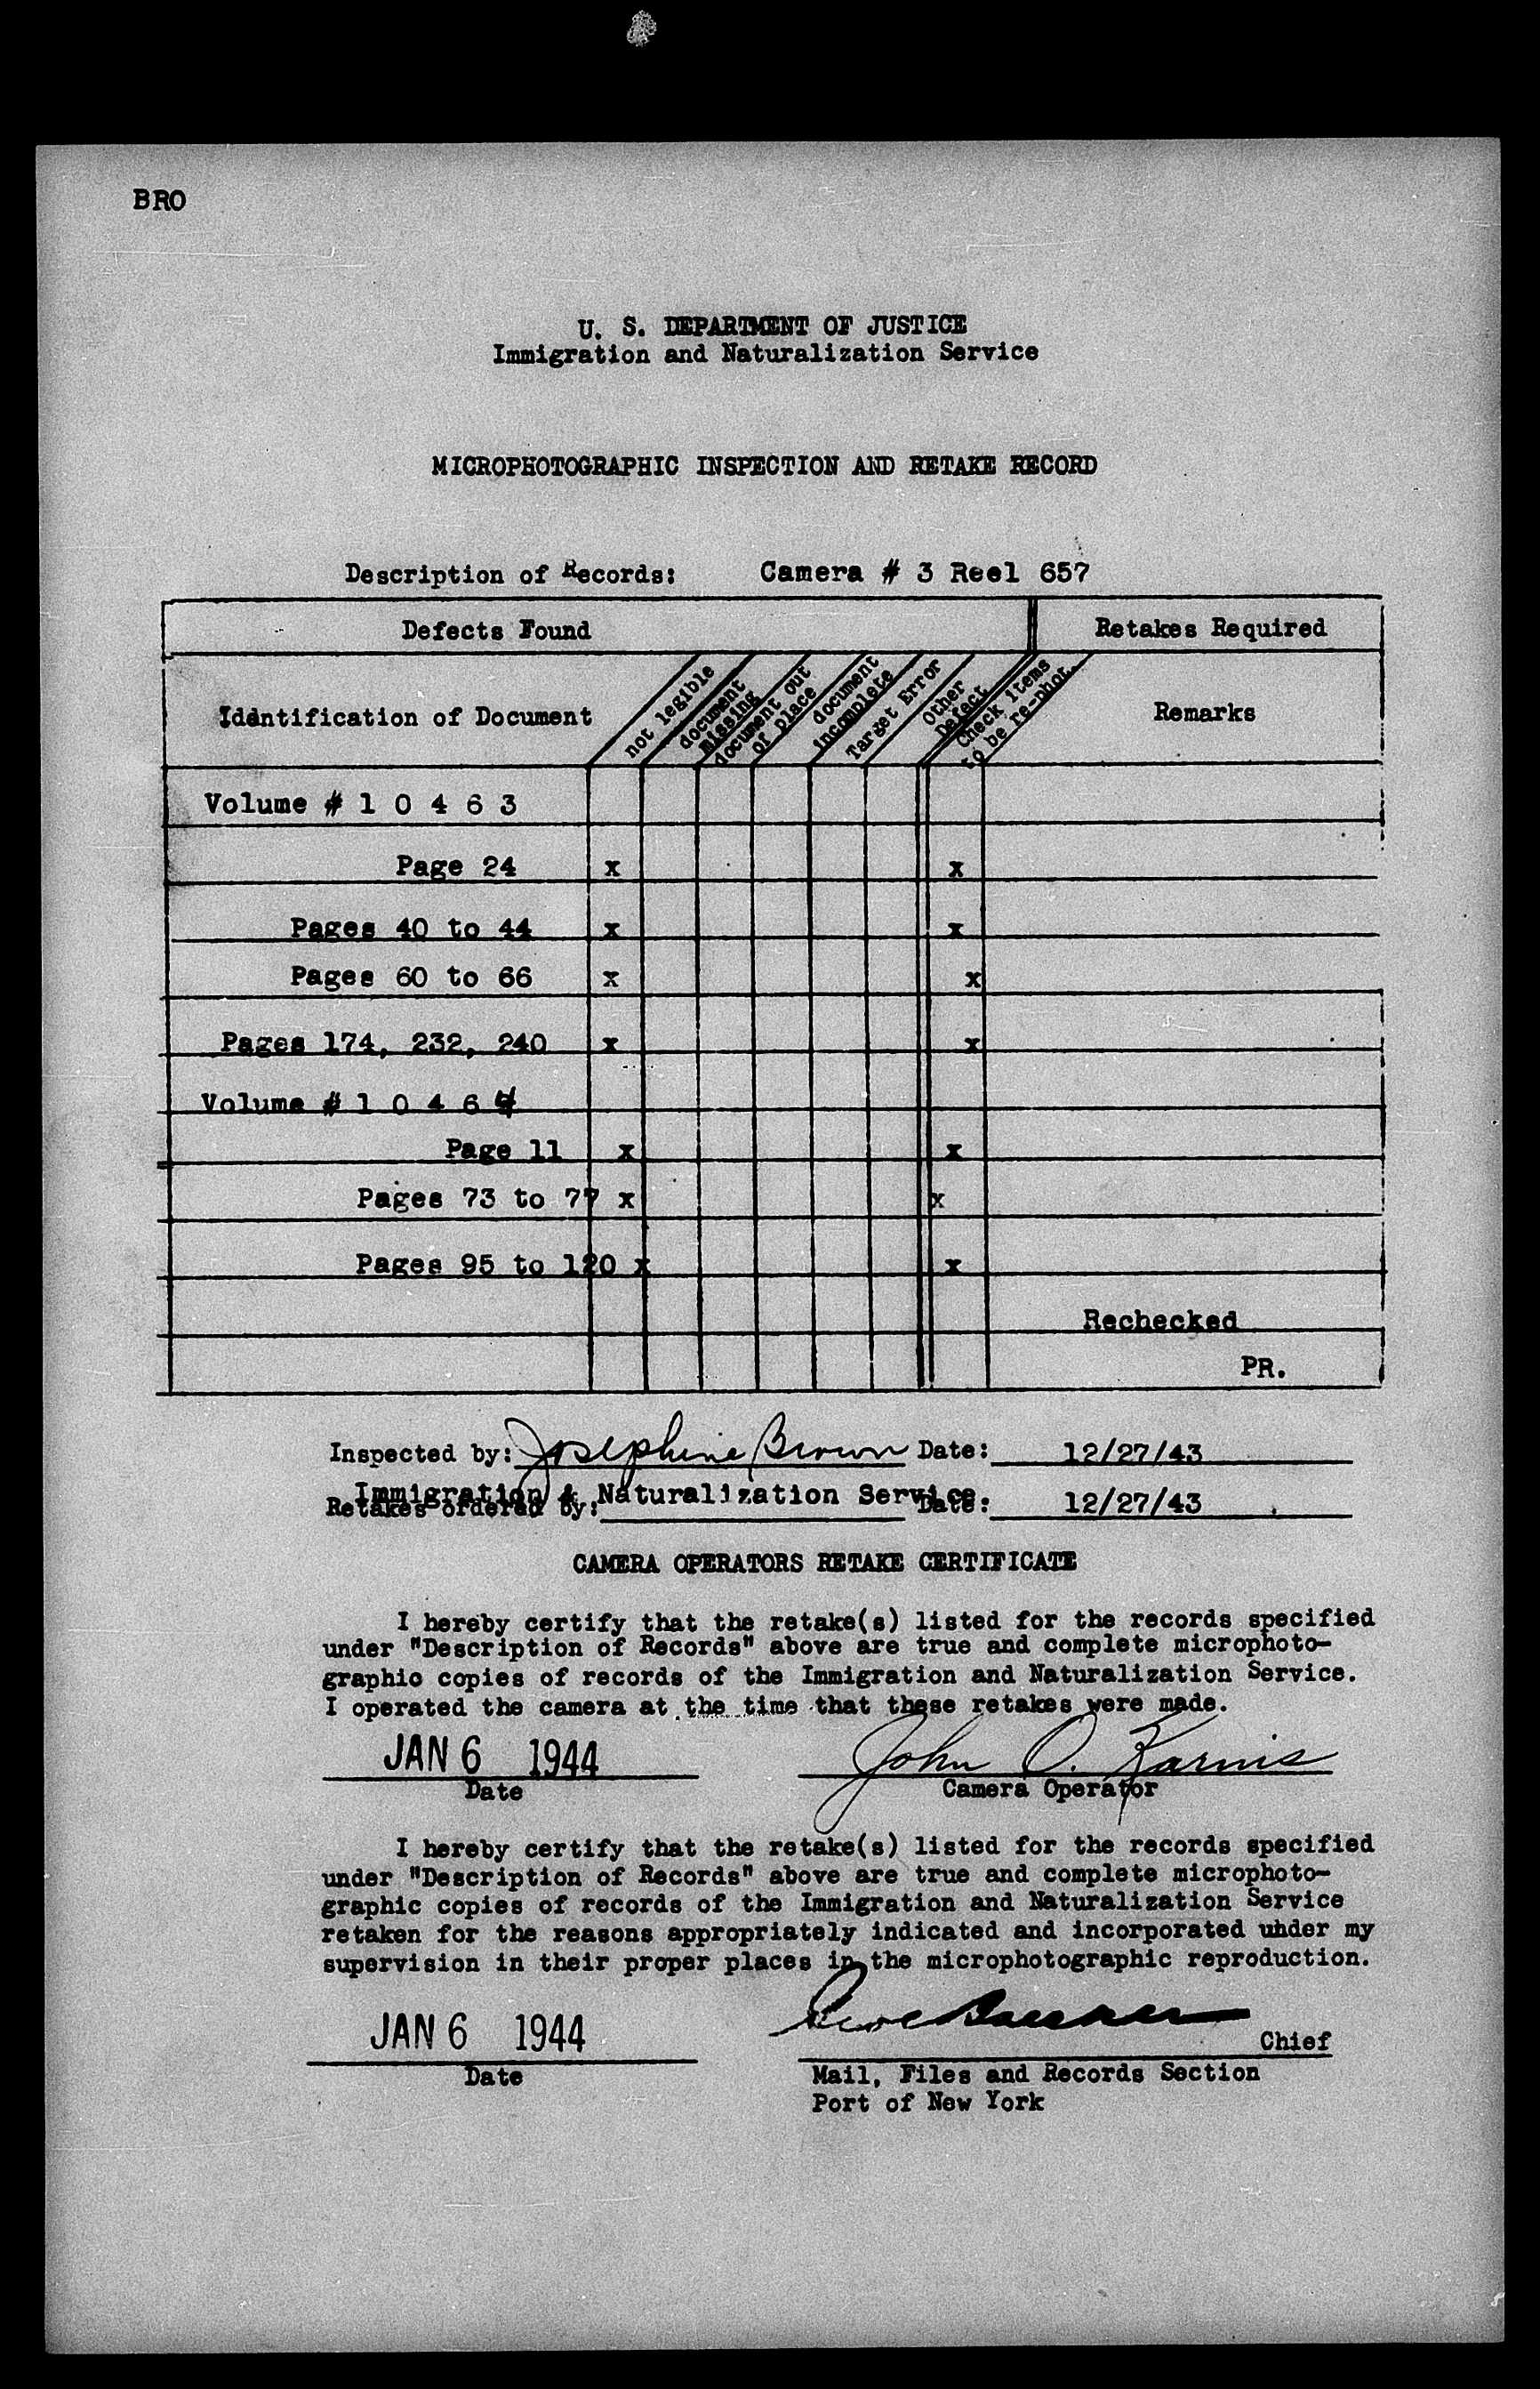 BRO
U. S. DEPARTMENT OF JUSTICE
Immigration and Naturalization Service
MICROPHOTOGRAPHIC INSPECTION AND RETAKE RECORD
Description of Records: Camera # 3 Reel 657
Defects Found Retakes Required
Identification of Document not legible document missing document out of place document incomplete Target Error Other Defect Check items to be re-phot. Remarks
Volume # 1 0 4 6 3
Page 24 x x
Pages 40 to 44 x x
Pages 60 to 66 x x
Pages 174, 232, 240 x x
Volume # 1 0 4 6 4
Page 11 x x
Pages 73 to 77 x x
Pages 95 to 120 x x
Rechecked
PR.
Inspected by: Josephine Brown Date: 12/27/43
Immigration & Naturalization Service.
Retakes ordered by: Date: 12/27/43
CAMERA OPERATORS RETAKE CERTIFICATE
I hereby certify that the retake(s) listed for the records specified
under "Description of Records" above are true and complete microphoto-
graphic copies of records of the Immigration and Naturalization Service.
I operated the camera at the time that these retakes were made.
JAN 6 1944 John O. Karnis
Date Camera Operator
I hereby certify that the retake(s) listed for the records specified
under "Description of Records" above are true and complete microphoto-
graphic copies of records of the Immigration and Naturalization Service
retaken for the reasons appropriately indicated and incorporated under my
supervision in their proper places in the microphotographic reproduction.
JAN 6 1944 Chief
Date Mail, Files and Records Section
Port of New York